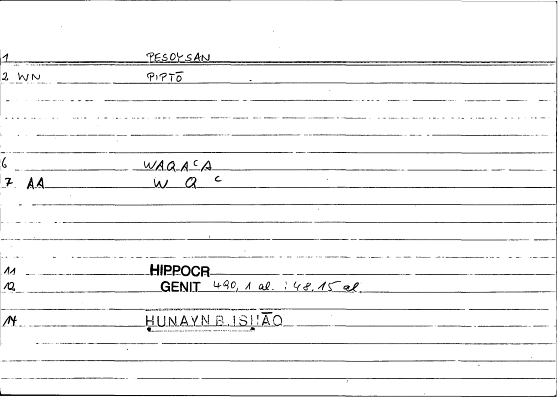 1 PESOYSAN
2 WN PIPTŌ
6 WAQAᶜA
7 AA W Q ᶜ
11 HIPPOCR
12 GENIT 490,1 al. : 48,15 al.
14 HUNAYN B. ISḤĀQ